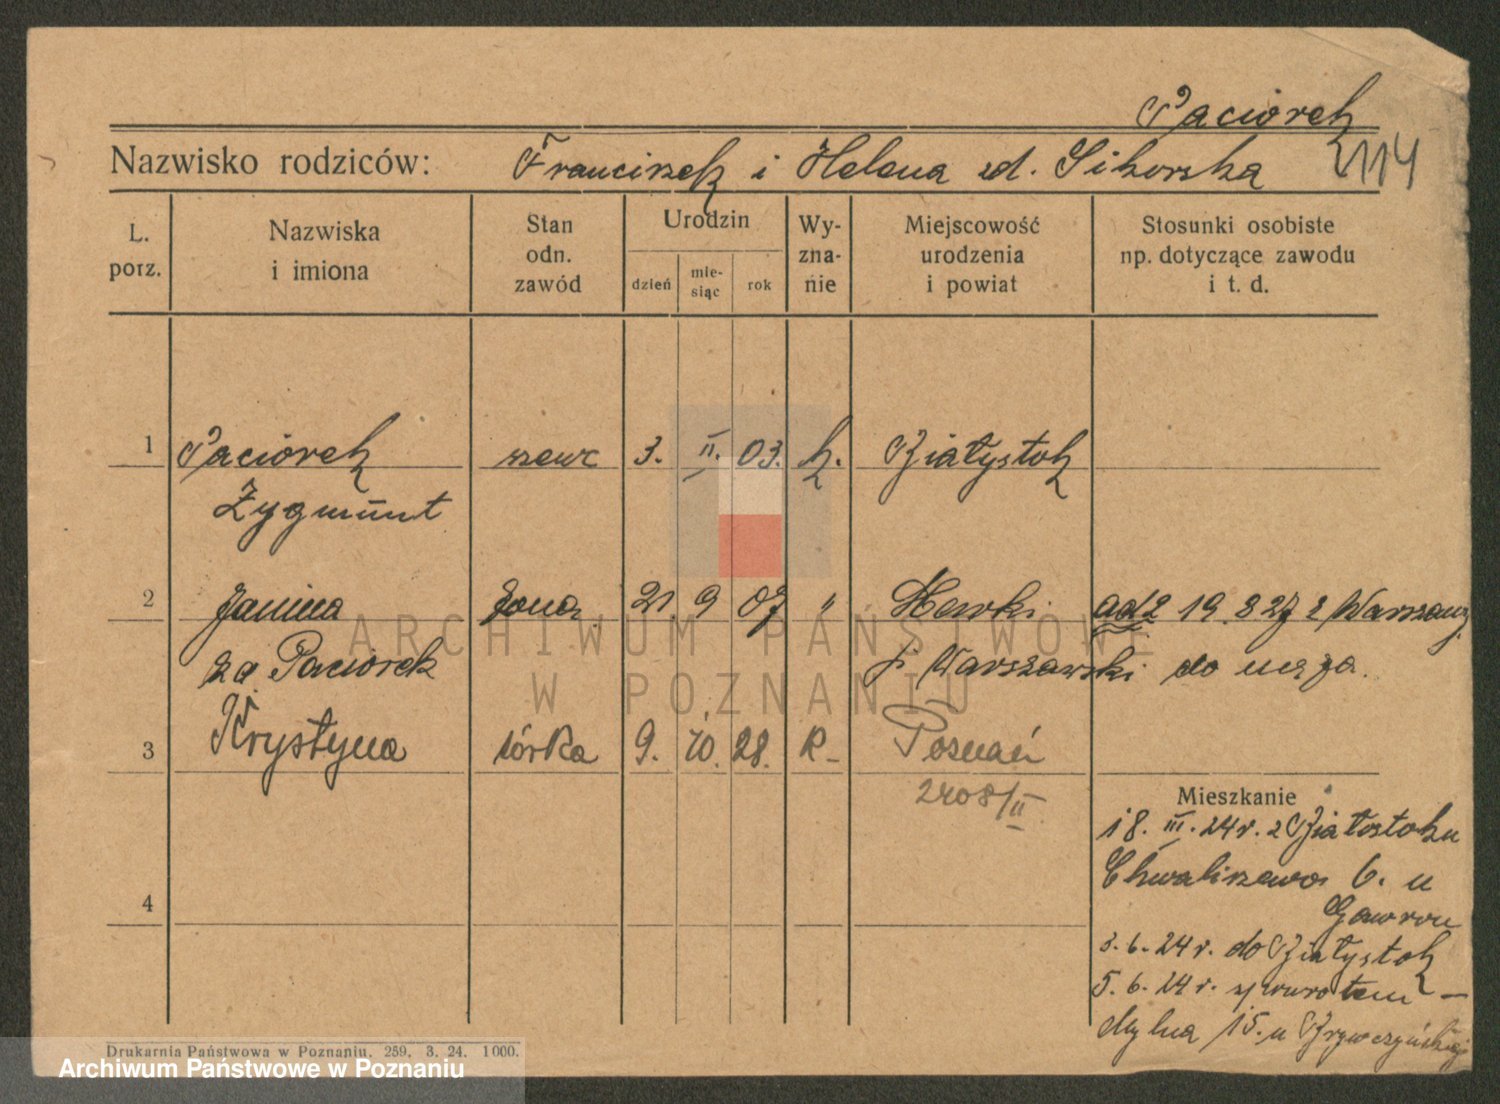 Paciorek
Nazwisko rodziców: Franciszek i Helena zd. Sikorska 2114
L. porz.
Nazwiska i imiona
Stan odn. zawód
Urodzin
dzień
mie-siąc
rok
Wy-zna-nie
Miejscowość urodzenia i powiat
Stosunki osobiste np. dotyczące zawodu i t. d.
1 Paciorek szewc 3. II. 03. k. Białystok
Zygmunt
2 Janina żona 21. 9 07 " 19. 8 27 z Warszawy
za Paciorek p. Warszawski do męża.
3 Krystyna córka 9. 10. 28. R- Poznań
2408/II
Mieszkanie
18. III. 24 r. z Białostoku
Chwaliszewo 6. u
Gawron
4
3. 6. 24 r. do Białystok
5. 6. 24 r. zpowrotem —
15. u
Drukarnia Państwowa w Poznaniu. 259. 3. 24. 1000.
ARCHIWUM PAŃSTWOWE
W POZNANIU
Archiwum Państwowe w Poznaniu